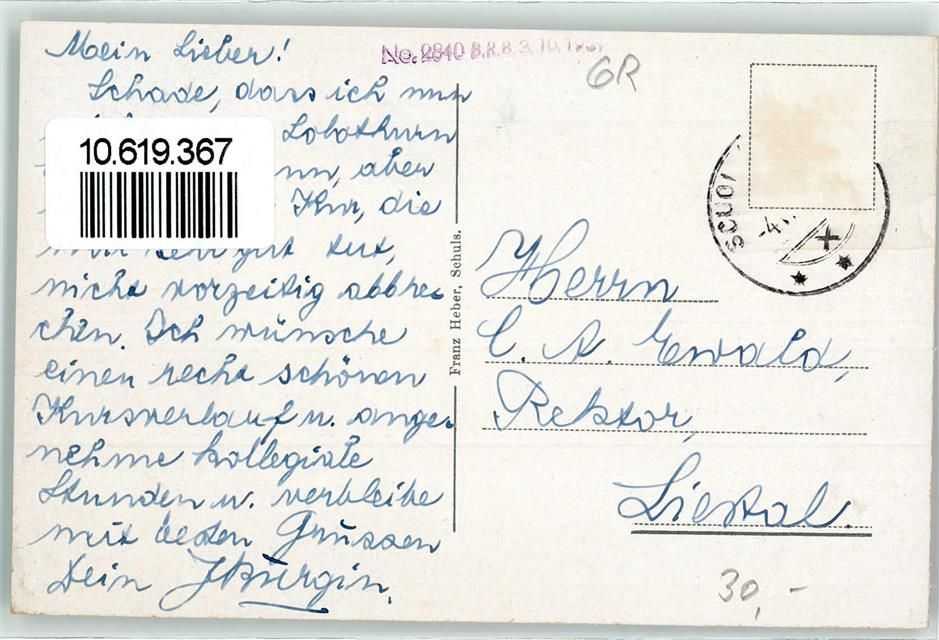 Mein Lieber!
Schade, dass ich nun
Solothurn
aber
Kur, die
mir sehr gut tut,
nicht vorzeitig abbre-
chen. Ich wünsche
einen recht schönen
Kursverlauf u. ange-
nehme kollegiale
Stunden u. verbleibe
mit besten Grüssen
Dein JBürgin.
10.619.367
No. 2840 B.R.B. 3.10.1931
GR
Franz Heber, Schuls.
SCUOL
-4.
Herrn
C. A. Ewald,
Rektor,
Liestal.
30,-